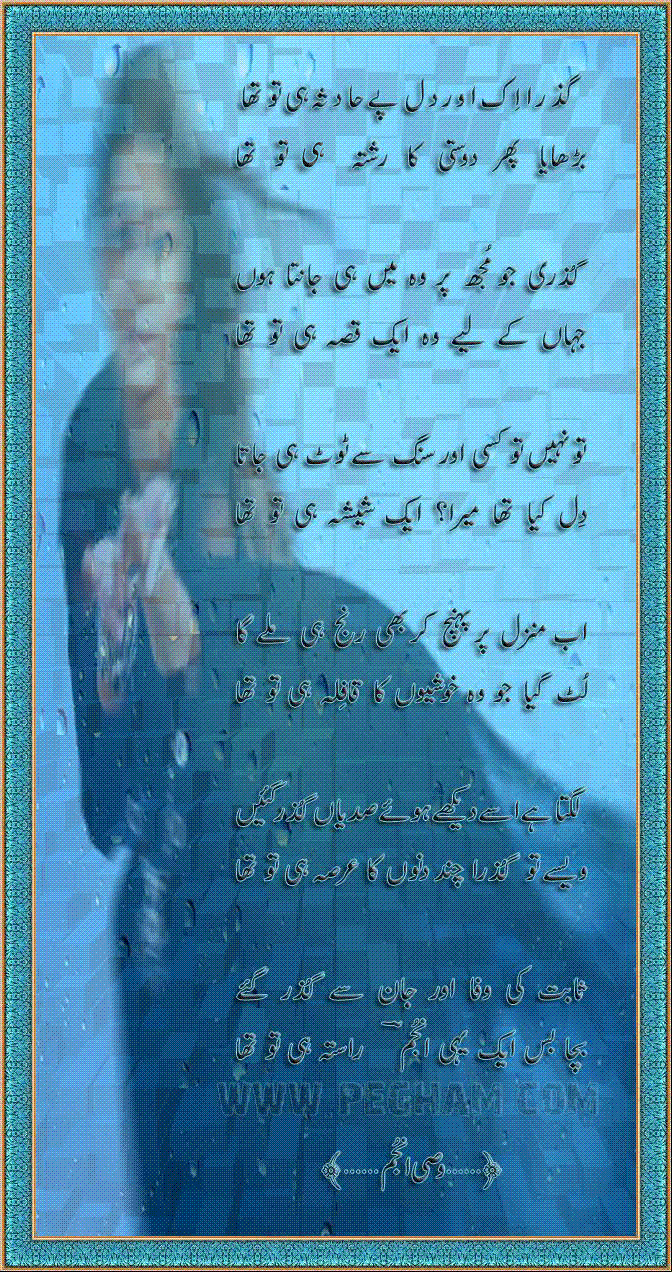 گذرا اِک اور دل پے حادثہ ہی تو تھا
بڑھایا پھر دوستی کا رشتہ ہی تو تھا
گذری جو مُجھ پر وہ میں ہی جانتا ہوں
جہاں کے لیے وہ ایک قصہ ہی تو تھا
تو نہیں تو کسی اور سنگ سے ٹوٹ ہی جاتا
دِل کیا تھا میرا؟ ایک شیشہ ہی تو تھا
اب منزل پر پہنچ کر بھی رنج ہی ملے گا
لُٹ گیا جو وہ خوشیوں کا قافِلہ ہی تو تھا
لگتا ہے اسے دیکھے ہوئے صدیاں گذر گئیں
ویسے تو گذرا چند دنوں کا عرصہ ہی تو تھا
ثابت کی وفا اور جان سے گذر گئے
بچا بس ایک یہی انجُم راستہ ہی تو تھا
WWW.PEGHAM.COM
﴿......وصی انجُم......﴾